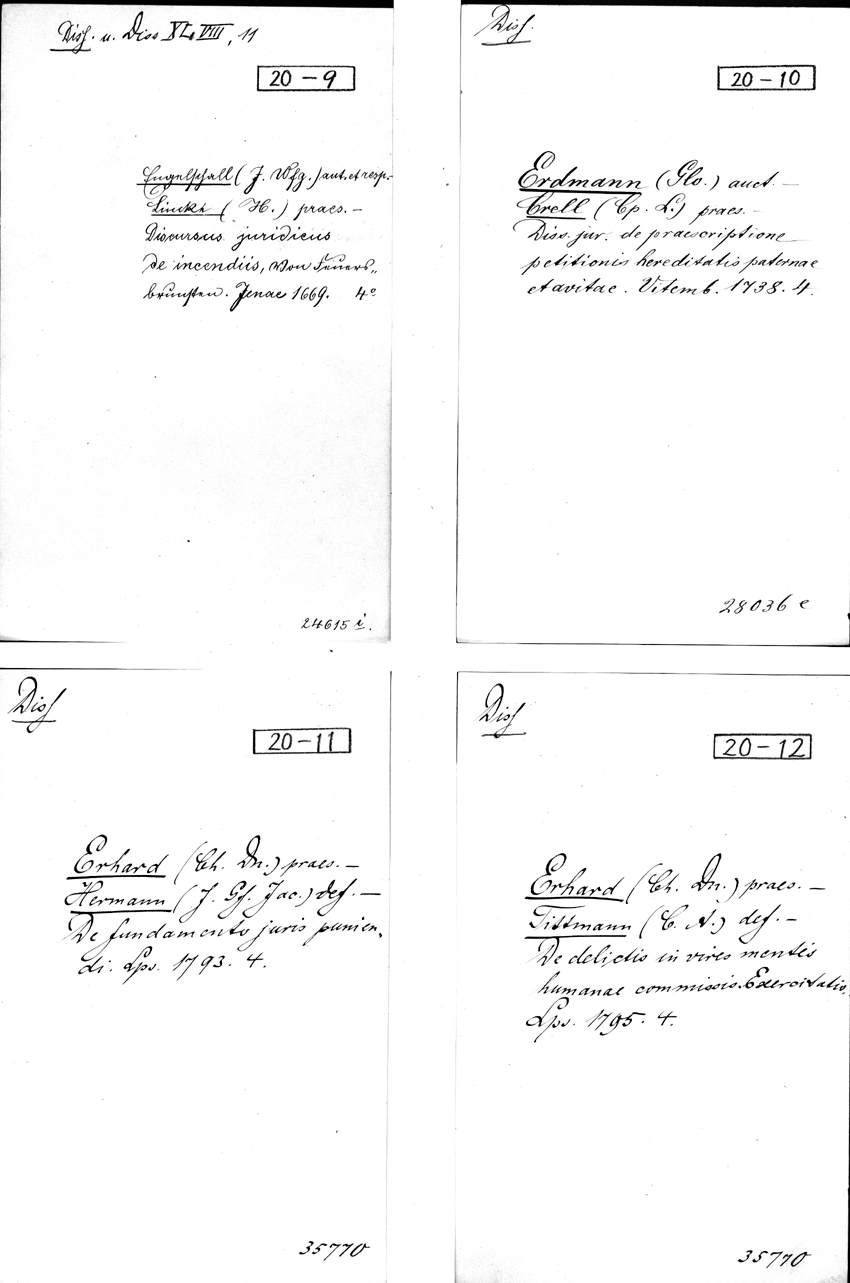 Diss. u. Diss XLVIII, 11
20-9
Engelschall (J. Wfg.) aut. et resp.-
Lincke (H.) praes. -
Discursus juridicus
de incendiis, Von Feuers„
brunsten. Jenae 1669. 4°
24615 i.
Diss.
20-10
Erdmann (Glo.) auct. -
Crell (Cp. L.) praes. -
Diss. jur. de praescriptione
petitionis hereditatis paternae
et avitae. Vitemb. 1738. 4.
28036 e
Diss
20-11
Erhard (Ch. Dn.) praes. -
Hermann (J. Gf. Jac.) def. -
De fundamento juris punien-
di. Lps. 1793. 4.
35770
Diss
20-12
Erhard (Ch. Dn.) praes. -
Tittmann (C. A.) def. -
De delictis in vires mentis
humanae commissis. Exercitatio.
Lps. 1795. 4.
35770